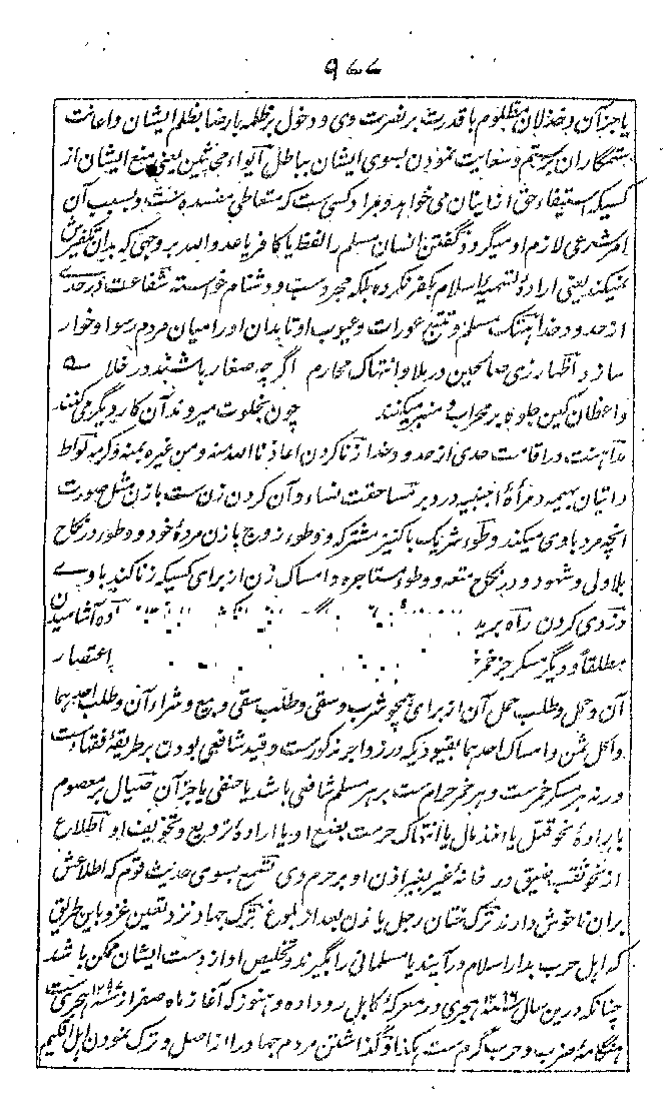 ۹۷۷
یا جز آن و خذلان مظلوم با قدرت بر نصرت وی و دخول بر ظلمه با رضا بظلم ایشان و اعانت
ستمگاران بر ستم و سعایت نمودن بسوی ایشان بباطل آیواء محدثین یعنی منع ایشان از
کسیکه استیفاء حق از اینان می خواهد و مراد کسی است که متعاطی مفسده هست و بسبب آن
امر شرعی لازم او میگردد گفتن انسان مسلم را لفظ یا کافر یا عدو الله بر وجهی که بدان تکفیرش
نمیکند یعنی ارادهٔ تسمیهٔ اسلام بکفر نکرده بلکه مجرد سب و دشنام خواسته شفاعت در حدی
از حدود خدا هتک مسلم و تتبع عورات و عیوب او تا بدان او را میان مردم رسوا و خوار
سازد اظهار زی صالحین در ملا و انتهاک محارم اگرچه صغار باشند در خلا
واعظان کین جلوه بر محراب و منبر میکنند چون بخلوت میروند آن کار دیگر می کنند
مداهنت در اقامت حدی از حدود خدا زنا کردن اعاذنا الله منه و من غیره بمنه و کرمه لواط
و اتیان بهیمه و مرأهٔ اجنبیه در دبر مساحقت نساء و آن کردن زن ست با زن مثل صورت
آنچه مرد با وی میکند وطوء شریک با کنیز مشترکه و وطوء زوج با زن مردهٔ خود و وطوء در نکاح
بلا ولی و شهود و در نکاح متعه و وطوء مستاجره و امساک زن از برای کسیکه زنا کند با وی
دزدی کردن راه برید
مطلقاً و دیگر مسکر جز خمر اعتصار
آن و حمل و طلب حمل آن از برای همچو شرب و سقی و طلب سقی و بیع و شراء آن و طلب احدهما
و اکل ثمن و امساک احدهما بقیودیکه در زواجر مذکورست و قید شافعی بودن بر طریقهٔ فقهاست
ورنه هر مسکر خمرست و هر خمر حرام ست بر هر مسلم شافعی باشد یا حنفی یا جز آن صیال بر معصوم
با ارادهٔ نحو قتل یا اخذ مال یا انتهاک حرمت بضع او یا ارادهٔ ترویع و تخویف او اطلاع
از نحو ثقب ضیق در خانهٔ غیر بغیر اذن او بر حرم وی تسمع بسوی حدیث قوم که اطلاعش
بران ناخوش دارند ترک ختان رجل یا زن بعد از بلوغ ترک جهاد نزد تعین غزو باین طریق
که اهل حرب بدار اسلام در آیند یا مسلمانی را بگیرند و تخلیص او از دست ایشان ممکن باشد
چنانکه درین سال ۱۲۹۶ هجری در معرکهٔ کابل رو داده و هنوز که آغاز ماه صفر از ۱۲۹۷ هجری ست
هنگامهٔ ضرب و حرب گرم ست هکذا و گذاشتن مردم جهاد را از اصل و ترک نمودن اهل اقلیم